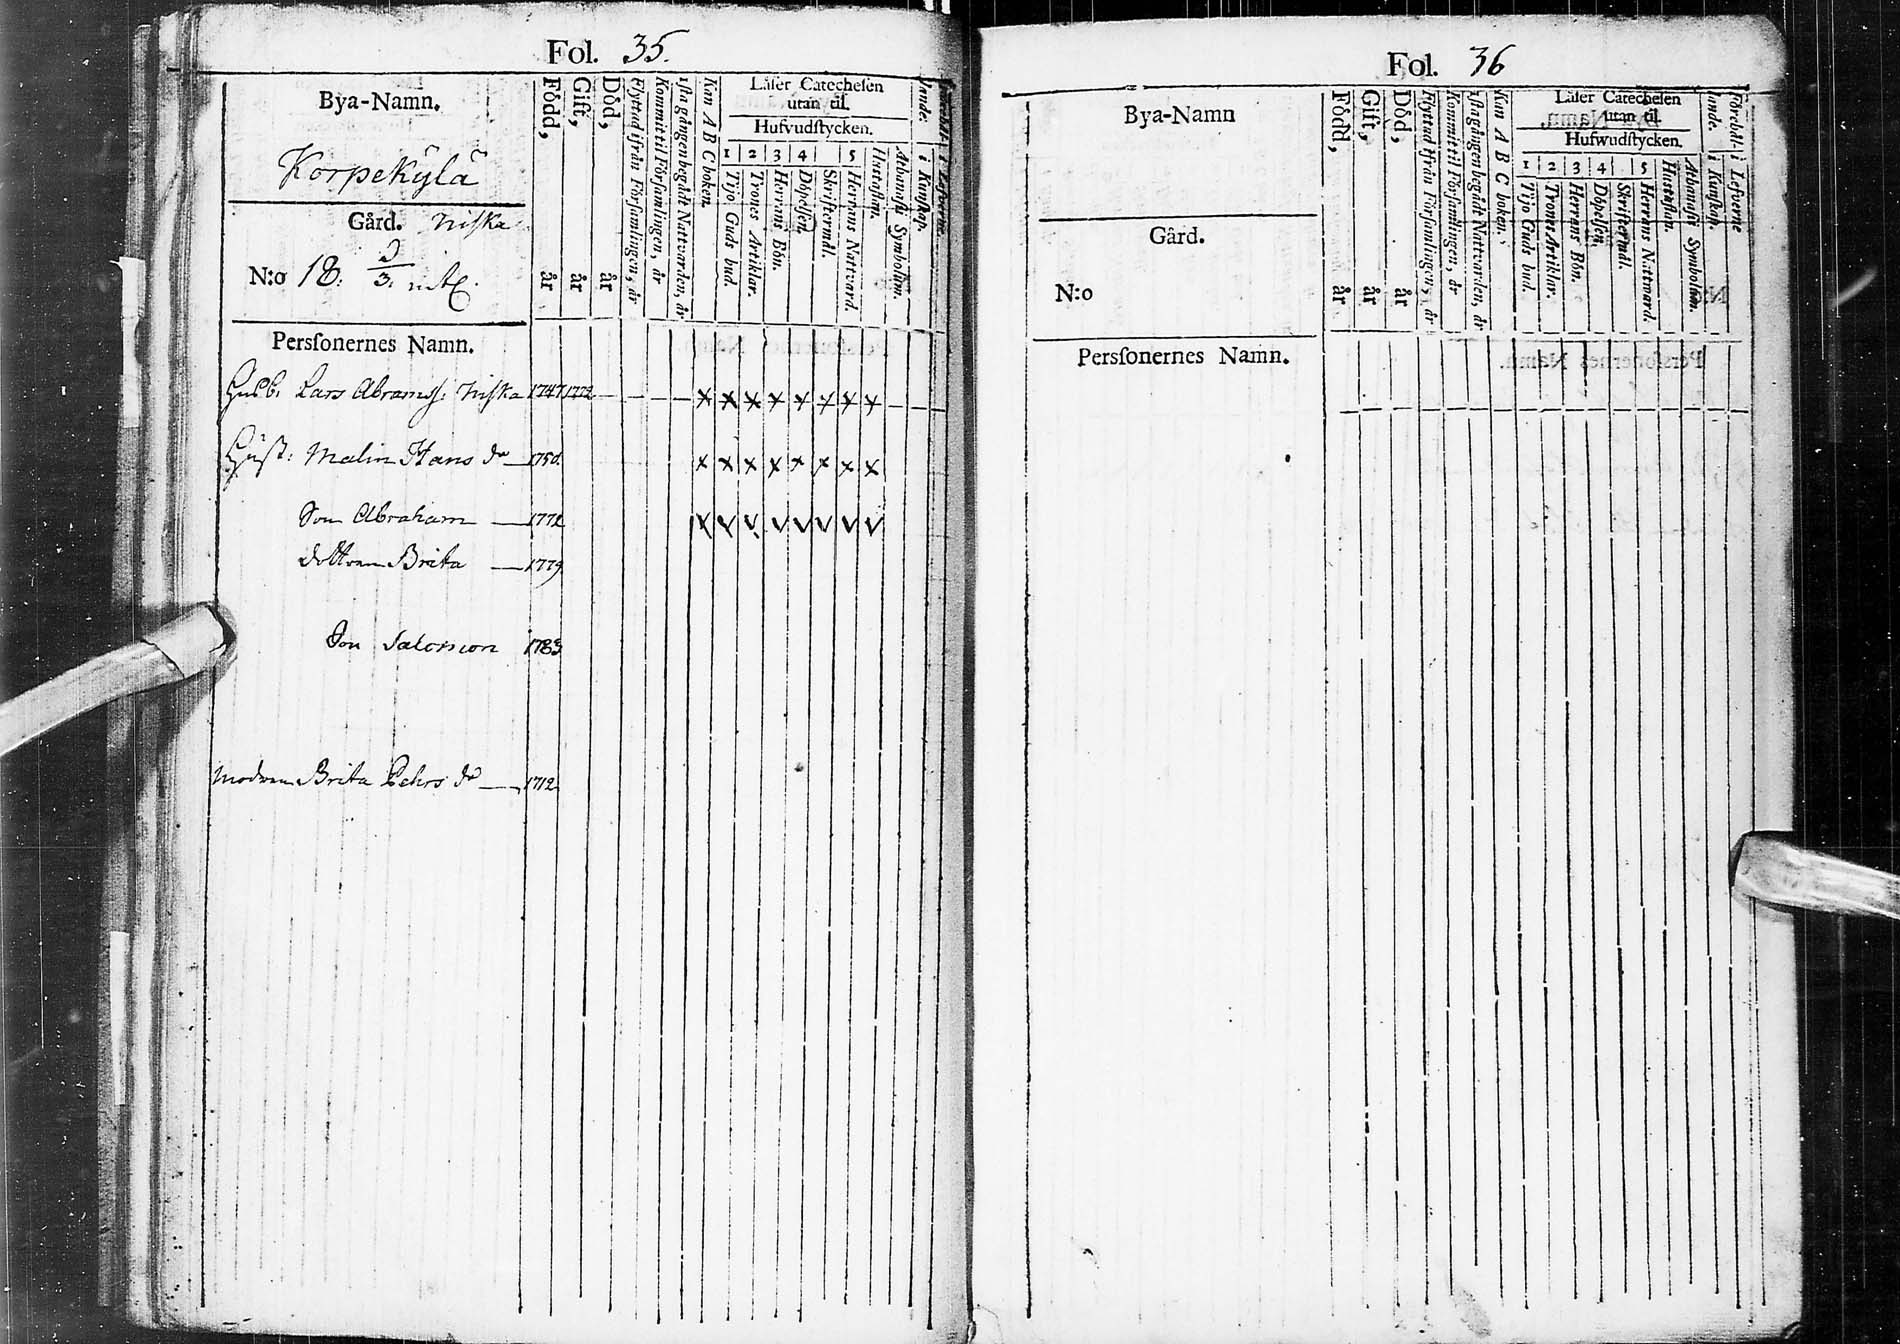 Fol. 35.
Bya-Namn.
Korpekÿlä
Gård. Niska
N:o 18. 3.
Född, år
Gift, år
Död, år
Flyttad ifrån Församlingen, år
Kommit til Församlingen, år
1sta gången begådt Nattvarden, år
Kan A B C boken.
Läser Catechesen
utan til.
Hufvudstycken.
1 2 3 4 5
Tijo Guds bud.
Trones Artiklar.
Herrans Bön.
Döpelsen.
Skriftermål.
Herrans Nattvard.
Hustaflan.
Athanasii Symbolum.
i Kunskap.
i Lefverne
Personernes Namn.
Husb. Lars Abramss. Niska 1747 1772
Hust: Malin Hans dr 1750.
Son Abraham 1772
dottren Brita 1779
Son Salomon 1783
Modren Brita Pehrs dr 1712
Fol. 36
Bya-Namn
Gård.
N:o
Född, år
Gift, år
Död, år
Flyttad ifrån Församlingen, år
Kommit til Församlingen, år
1sta gången begådt Nattvarden, år
Kan A B C boken.
Läser Catechesen
utan til.
Hufwudstycken.
1 2 3 4 5
Tijo Guds bud.
Trones Artiklar.
Herrans Bön.
Döpelsen.
Skriftermål.
Herrans Nattward.
Hustaflan.
Athanasii Symbolum.
i Kunskap.
i Lefverne
Personernes Namn.